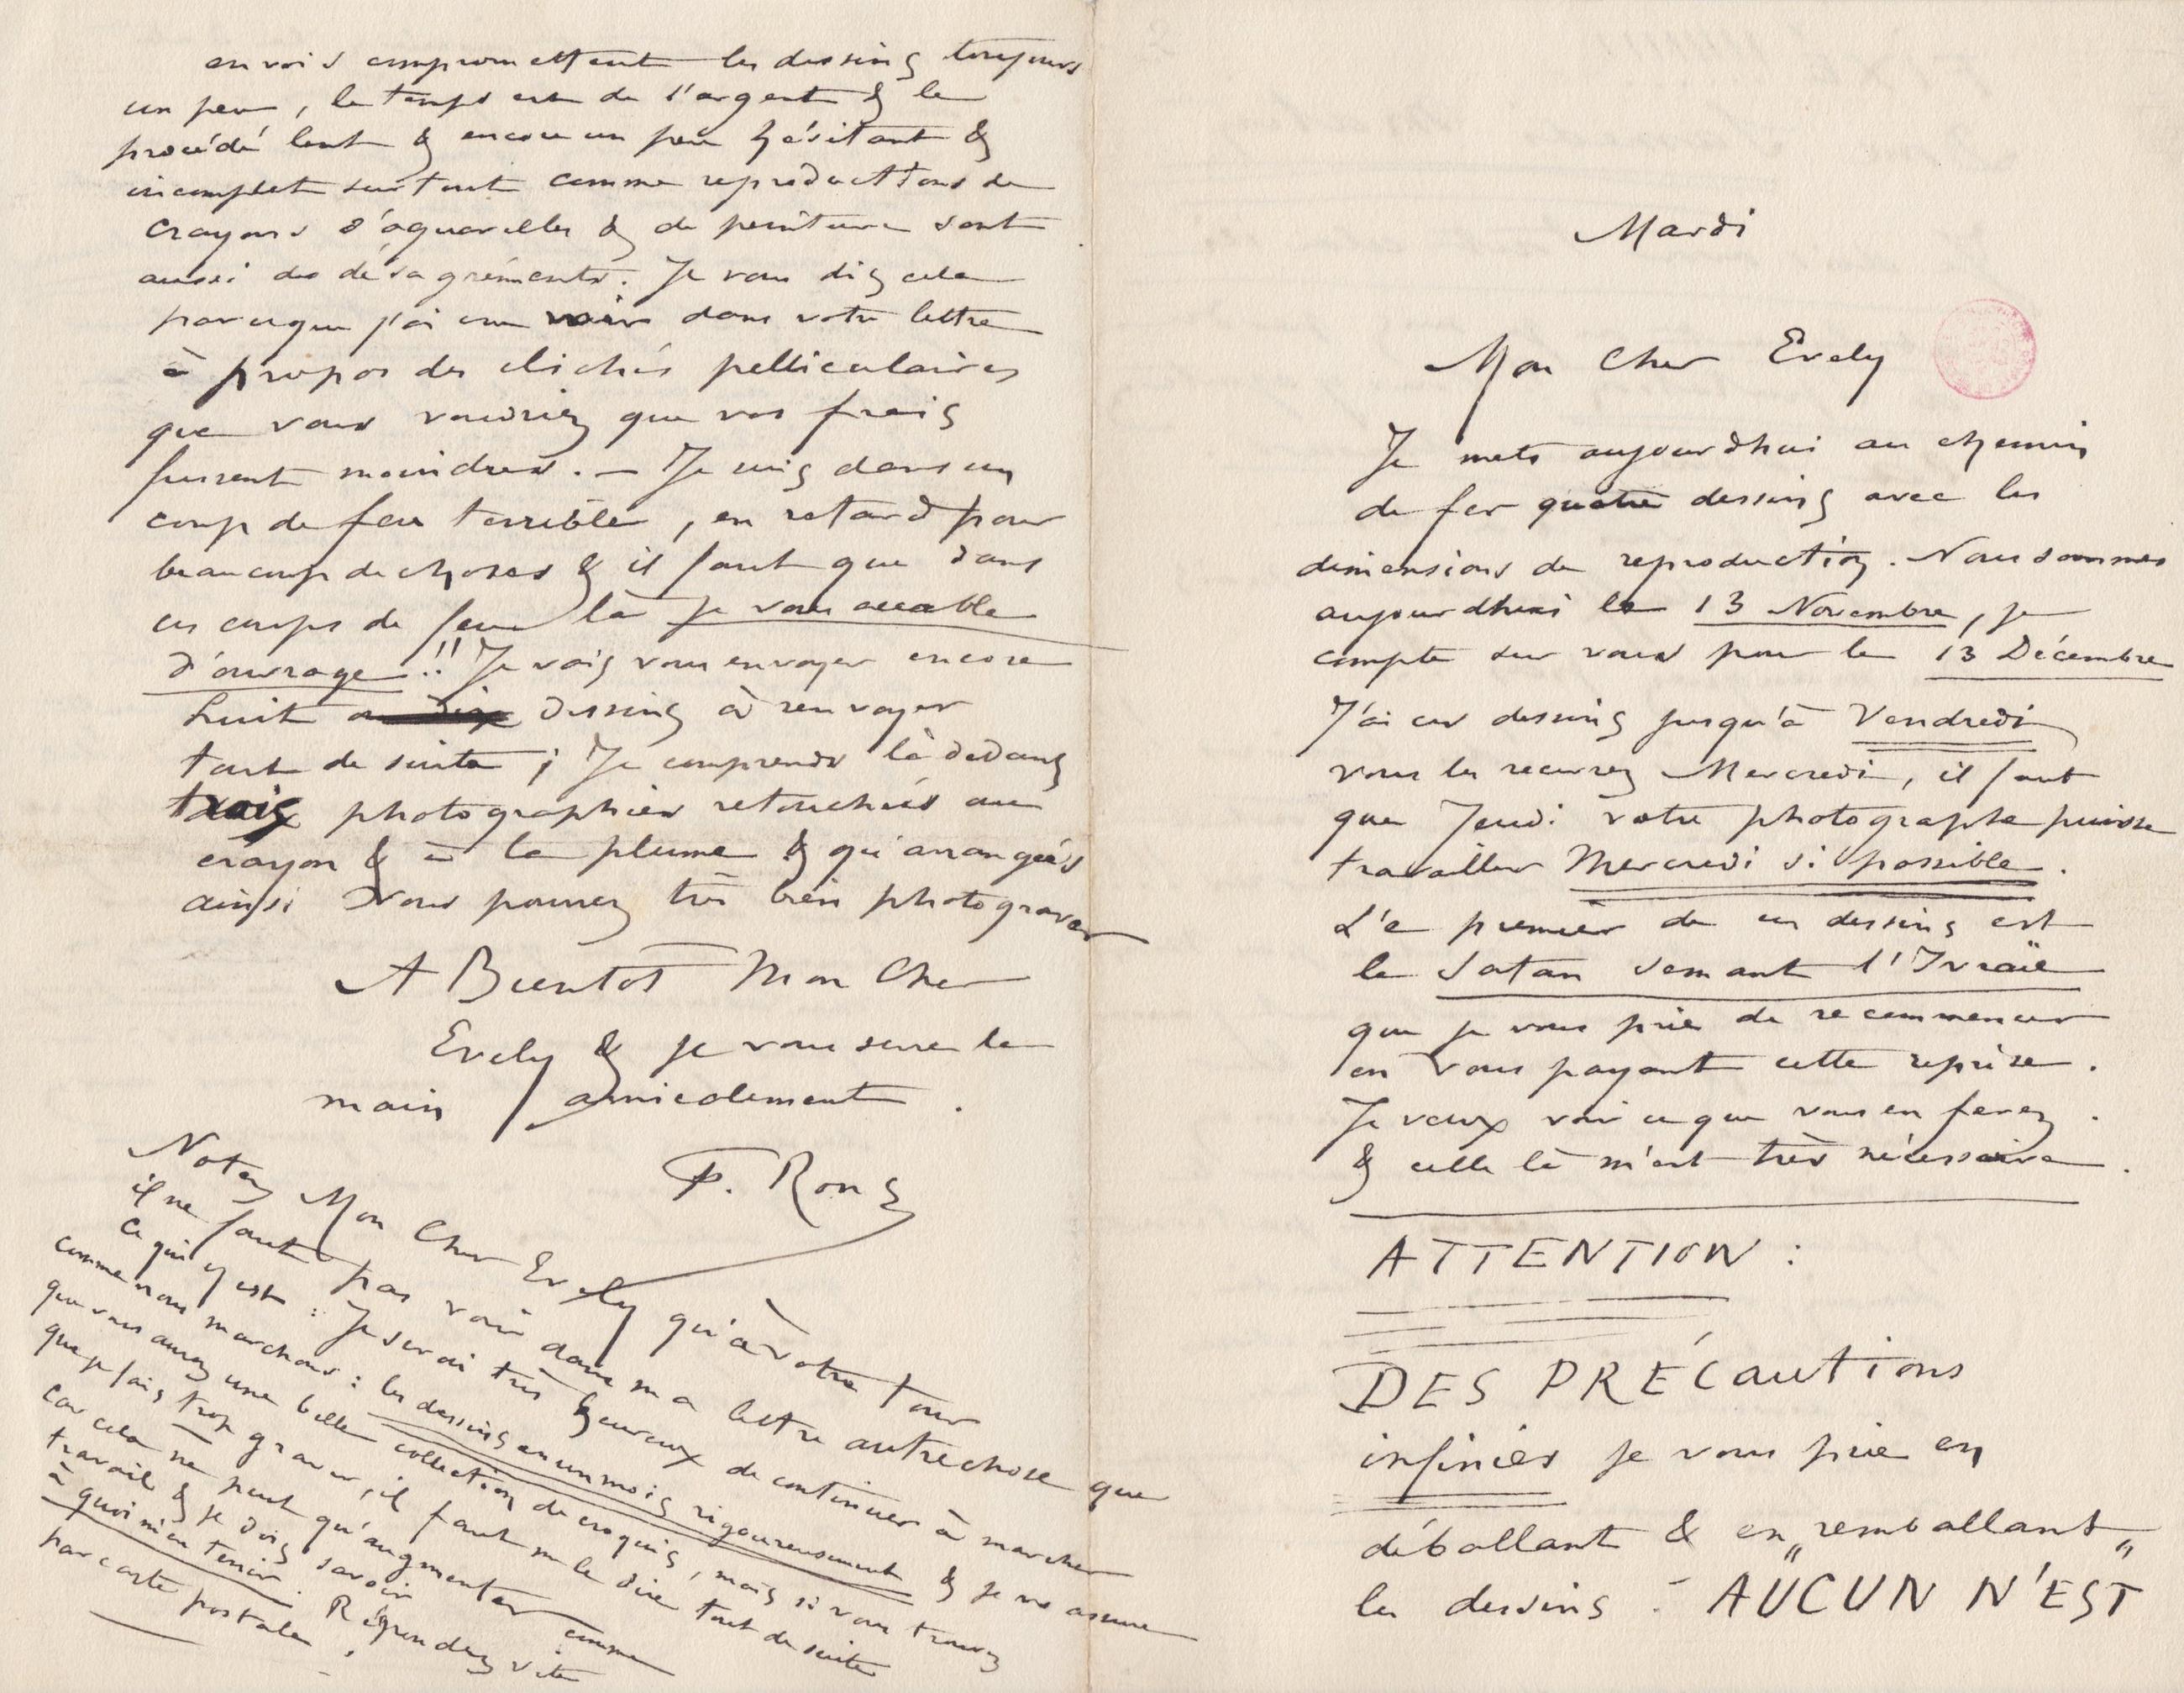 Mardi
Mon Cher Evely
Je mets aujourdhui au chemin
de fer quatre dessins avec les
dimensions de reproduction. Nous sommes
aujourdhui le 13 Novembre, je
compte sur vous pour le 13 Décembre
J'ai ces dessins jusqu'à Vendredi
vous les recevrez Mercredi, il faut
que Jeudi votre photographe puisse
travailler Mercredi si possible.
Le premier de ces dessins est
le Satan semant l'Ivraïe
que je vous prie de recommencer
en vous payant cette reprise.
Je veux voir ce que vous en ferez.
& celle là m'est très nécessaire.
ATTENTION :
DES PRÉCautions
infinies je vous prie en
déballant & en „remballant„
les dessins. AUCUN N'EST
envois compromettent les dessins toujours
un peu, le temps est de l'argent & le
procédé lent & encore un peu hésitant &
incomplet surtout comme reproductions de
crayons d'aquarelles & de peinture sont
aussi des désagréments. Je vous dis cela
parceque j'ai cru voir dans votre lettre
à propos des clichés pelliculaires
que vous voudriez que vos frais
fussent moindres. – Je suis dans un
coup de feu terrible, en retard pour
beaucoup de choses & il faut que dans
ces coups de feu là je vous accable
d'ouvrage !! Je vais vous envoyer encore
huit ou dix dessins à renvoyer
tout de suite ; Je comprends là dedans
trois photographies retouchées au
crayon & à la plume & qu'arrangées
ainsi vous pourrez très bien photograver
A Bientot Mon Cher
Evely & je vous serre la
main amicalement.
F. Rops
Notez Mon Cher Evely qu'à votre tour
il ne faut pas voir dans ma lettre autre chose que
ce qui y est : Je serai très heureux de continuer à marcher
comme nous marchons : les dessins en un mois rigoureusement & je vous assure
que vous aurez une belle collection de croquis, mais si vous trouvez
que je fais trop graver, il faut me le dire tout de suite
car cela ne peut qu'augmenter comme
travail & je dois savoir
à quoi m'en tenir. Répondez vite
par carte postale !